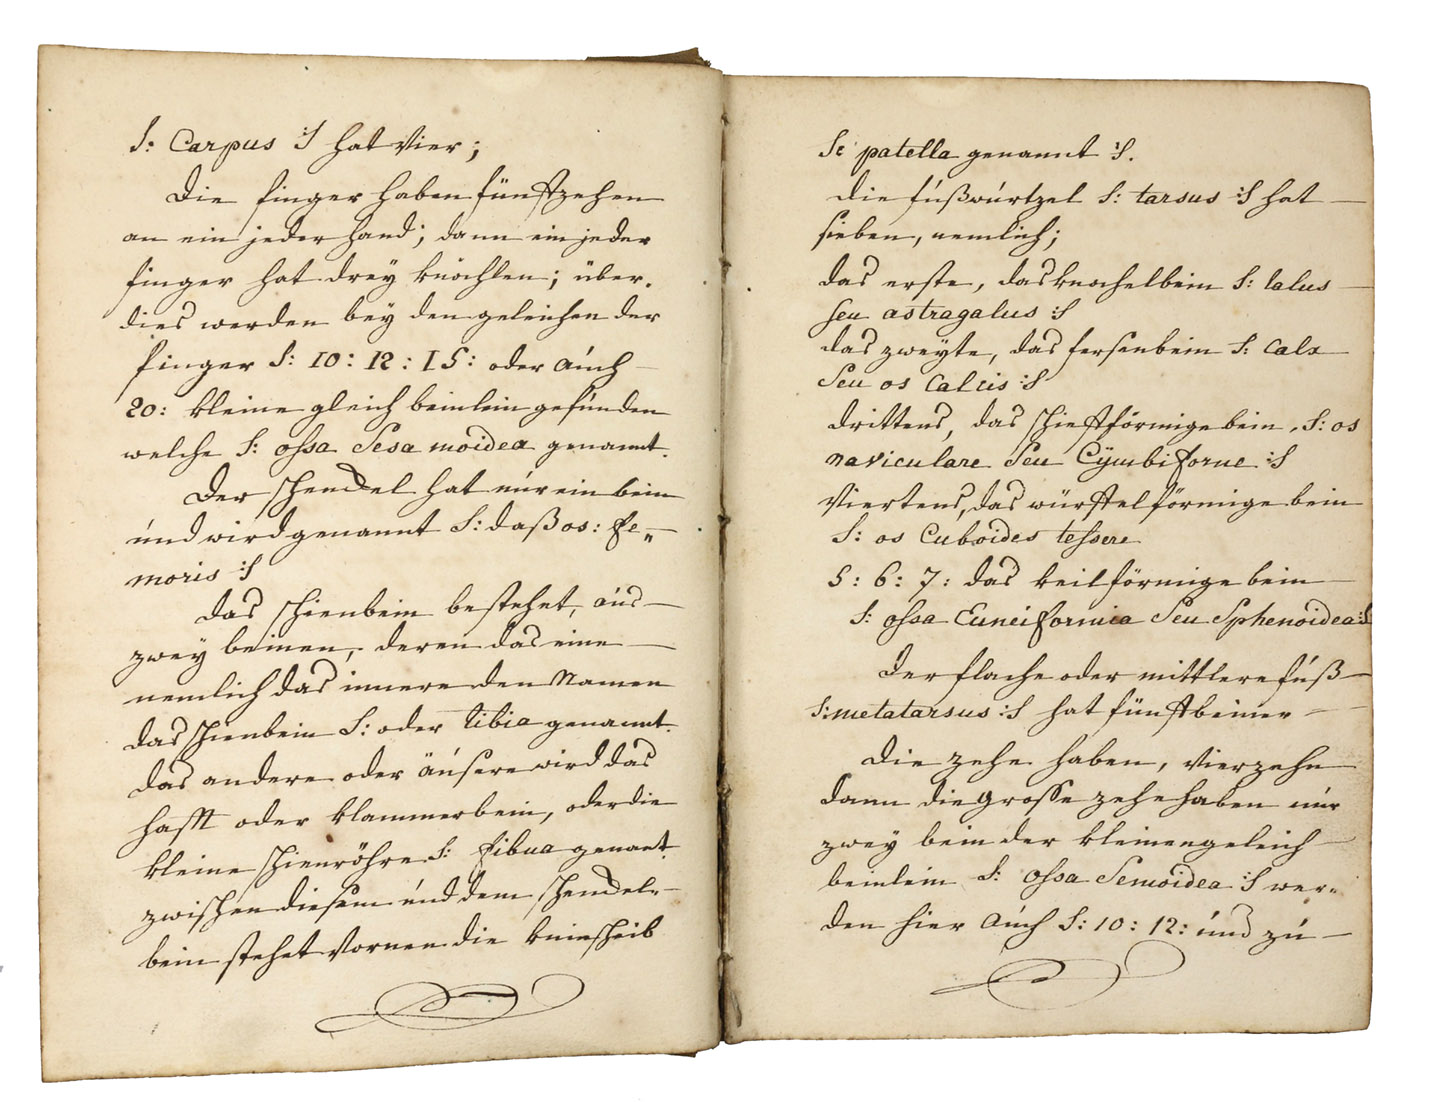 S: Carpus :S hat Vier;
Die finger haben fünffzehen
an ein jeder hand; dann ein jeder
finger hat dreÿ knöchlen; über.
dies werden beÿ den geleichen der
finger S: 10: 12: 15: oder auch
20: kleine gleich beinlein gefunden
welche S: ossa Sesamoidea genannt.
Der schenckel hat nur ein bein
und wird genannt S: daß os: fe„
moris :S
das schienbein bestehet, aus
zweÿ beinen, deren das eine
nemlich das innere den Namen
das schienbein S: oder tibia genannt.
das andere oder äusere wird das
hafft oder klammerbein, oder die
kleine schienröhre S: fibua genant.
zwischen diesem und dem schenckel-
bein stehet vornen die kniescheib
Se patella genannt :S.
die fußwurtzel S: tarsus :S hat
sieben, nemlich;
das erste, das knochelbein S: talus
seu astragalus :S
das zweÿte, das fersenbein S: calx
Seu os Calcis :S
drittens, das schiffförmige bein, S: os
naviculare Seu Cÿmbiforme :S
Viertens, das würffelförmige bein
S: os Cuboides tessere
5: 6: 7: das keilförmige bein
S: ossa Cuneiformia Seu Sphenoidea :S
Der flache oder mittlere fuß
S: metatarsus :S hat fünff beiner
Die zehe haben, vierzehn
dann die grosse zehe haben nur
zweÿ bein der kleinen gleich
beinlein S: ossa Semoidea :S wer-
den hier auch S: 10: 12: und zu